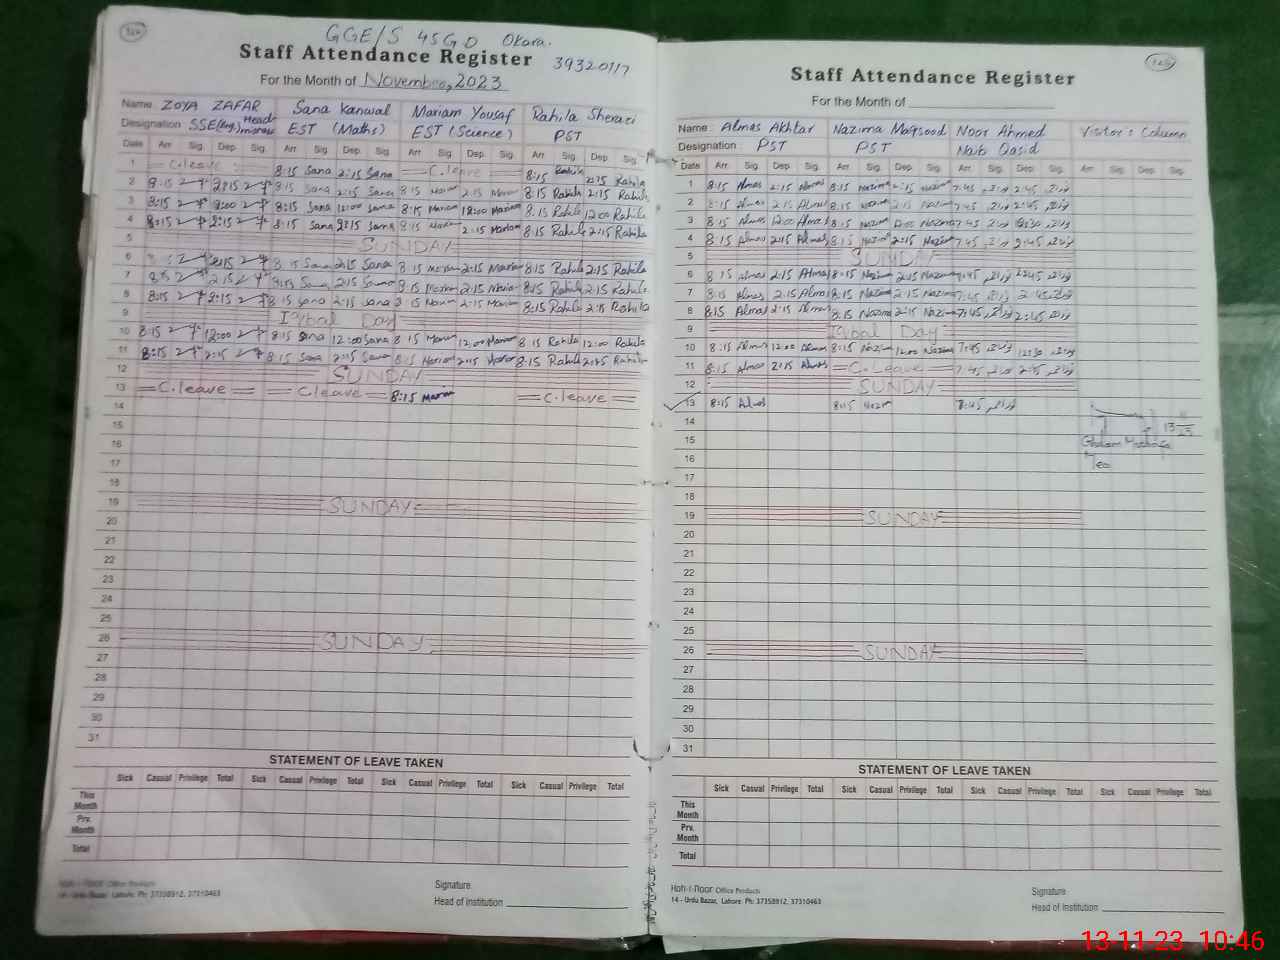 GGE/S 45GD Okara.
Staff Attendance Register
39320117
For the Month of November, 2023
Name: ZOYA ZAFAR Sana Kanwal Mariam Yousaf Rahila Sherazi
Designation: SSE(Eng.) Head mistress EST (Maths) EST (Science) PST
Date Arr Sig. Dep. Sig. Arr Sig. Dep. Sig. Arr Sig. Dep. Sig. Arr Sig. Dep. Sig.
1 C.leave 8:15 Sana 2:15 Sana C.leave 8:15 Rahila 2:15 Rahila
2 8:15 2:15 8:15 Sana 2:15 Sana 8:15 Mariam 2:15 Mariam 8:15 Rahila 2:15 Rahila
3 8:15 12:00 8:15 Sana 12:00 Sana 8:15 Mariam 12:00 Mariam 8:15 Rahila 12:00 Rahila
4 8:15 2:15 8:15 Sana 2:15 Sana 8:15 Mariam 2:15 Mariam 8:15 Rahila 2:15 Rahila
5 SUNDAY
6 2:15 8:15 Sana 2:15 Sana 8:15 Mariam 2:15 Mariam 8:15 Rahila 2:15 Rahila
7 8:15 2:15 8:15 Sana 2:15 Sana 8:15 Mariam 2:15 Mariam 8:15 Rahila 2:15 Rahila
8 8:15 2:15 8:15 Sana 2:15 Sana 8:15 Mariam 2:15 Mariam 8:15 Rahila 2:15 Rahila
9 Iqbal Day
10 8:15 12:00 8:15 Sana 12:00 Sana 8:15 Mariam 12:00 Mariam 8:15 Rahila 12:00 Rahila
11 8:15 2:15 8:15 Sana 2:15 Sana 8:15 Mariam 2:15 Mariam 8:15 Rahila 2:15 Rahila
12 SUNDAY
13 C.leave C.leave 8:15 Mariam C.leave
14
15
16
17
18
19 SUNDAY
20
21
22
23
24
25
26 SUNDAY
27
28
29
30
31
STATEMENT OF LEAVE TAKEN
Sick Casual Privilege Total Sick Casual Privilege Total Sick Casual Privilege Total Sick Casual Privilege Total
This Month
Prv. Month
Total
Koh-I-Noor Office Products
14 - Urdu Bazar, Lahore. Ph: 37358912, 37310463
Signature
Head of Institution
Staff Attendance Register
For the Month of
Name: Almas Akhtar Nazima Maqsood Noor Ahmed Visitor's Column
Designation: PST PST Naib Qasid
Date Arr. Sig. Dep. Sig. Arr Sig. Dep. Sig. Arr. Sig. Dep. Sig. Arr Sig. Dep. Sig.
1 8:15 Almas 2:15 Almas 8:15 Nazima 2:15 Nazima 7:45 2:45
2 8:15 Almas 2:15 Almas 8:15 Nazima 2:15 Nazima 7:45 2:45
3 8:15 Almas 12:00 Almas 8:15 Nazima 12:00 Nazima 7:45 12:30
4 8:15 Almas 2:15 Almas 8:15 Nazima 2:15 Nazima 7:45 2:45
5 SUNDAY
6 8:15 Almas 2:15 Almas 8:15 Nazima 2:15 Nazima 7:45 2:45
7 8:15 Almas 2:15 Almas 8:15 Nazima 2:15 Nazima 7:45 2:45
8 8:15 Almas 2:15 Almas 8:15 Nazima 2:15 Nazima 7:45 2:45
9 Iqbal Day
10 8:15 Almas 12:00 Almas 8:15 Nazima 12:00 Nazima 7:45 12:30
11 8:15 Almas 2:15 Almas C.Leave 7:45 2:45
12 SUNDAY
13 8:15 Almas 8:15 Nazim 7:45
14
15
16
17
18
19 SUNDAY
20
21
22
23
24
25
26 SUNDAY
27
28
29
30
31
STATEMENT OF LEAVE TAKEN
Sick Casual Privilege Total Sick Casual Privilege Total Sick Casual Privilege Total Sick Casual Privilege Total
This Month
Prv. Month
Total
Koh-I-Noor Office Products
14 - Urdu Bazar, Lahore. Ph: 37358912, 37310463
Signature
Head of Institution
13-11-23 10:46